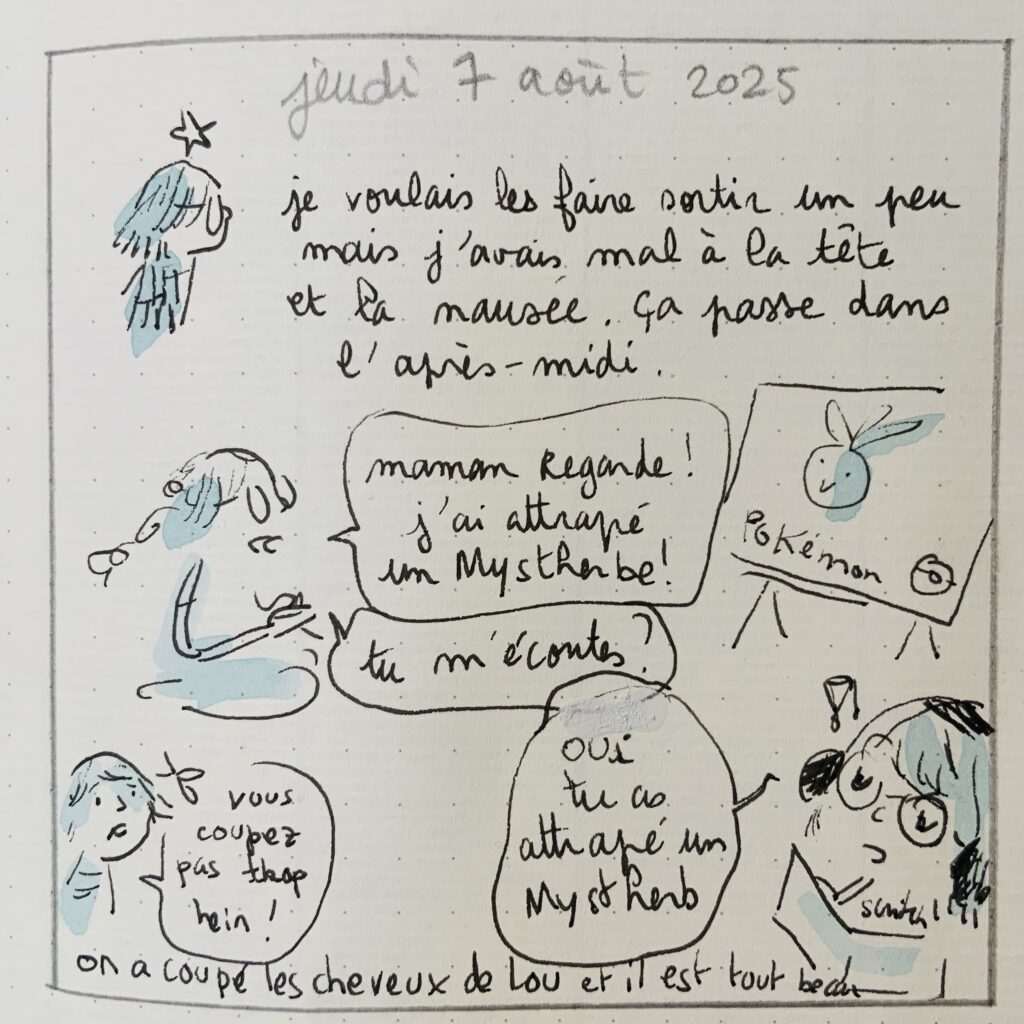 jeudi 7 août 2025
je voulais les faire sortir un peu
mais j'avais mal à la tête
et la nausée. ça passe dans
l'après-midi.
maman Regarde!
j'ai attrapé
un Mystherbe!
Pokémon
tu m'écoutes?
OUi
tu as
attrapé un
Mystherb
vous
coupez
pas trop
hein!
on a coupé les cheveux de Lou et il est tout beau